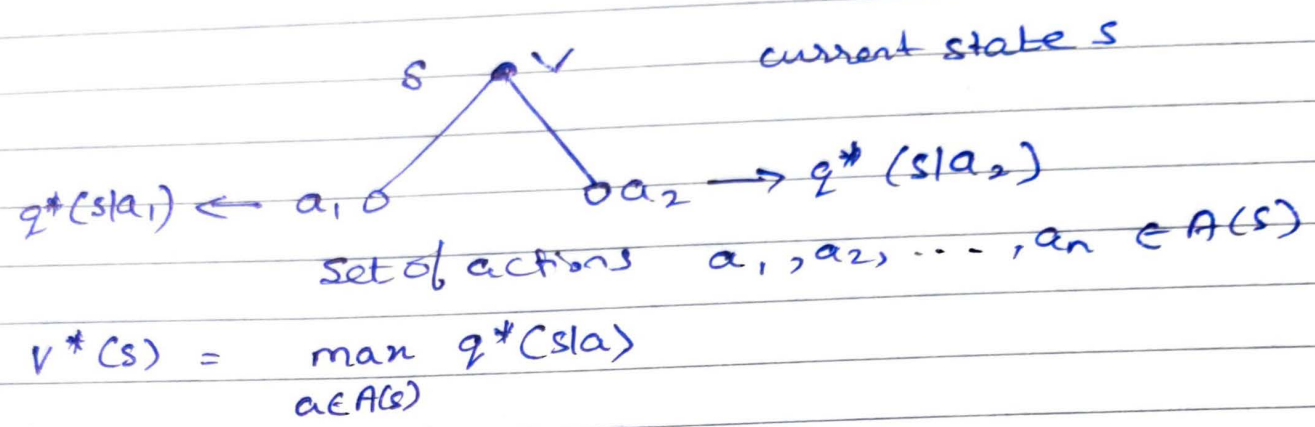 s v current state s
q*(s|a₁) ← a₁ a₂ → q*(s|a₂)
set of actions a₁, a₂, ..., aₙ ∈ A(s)
v*(s) = max q*(s|a)
a∈A(s)